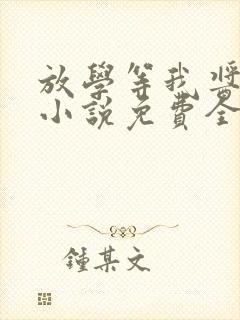 放學等我 將
小說免費全
鍾某文